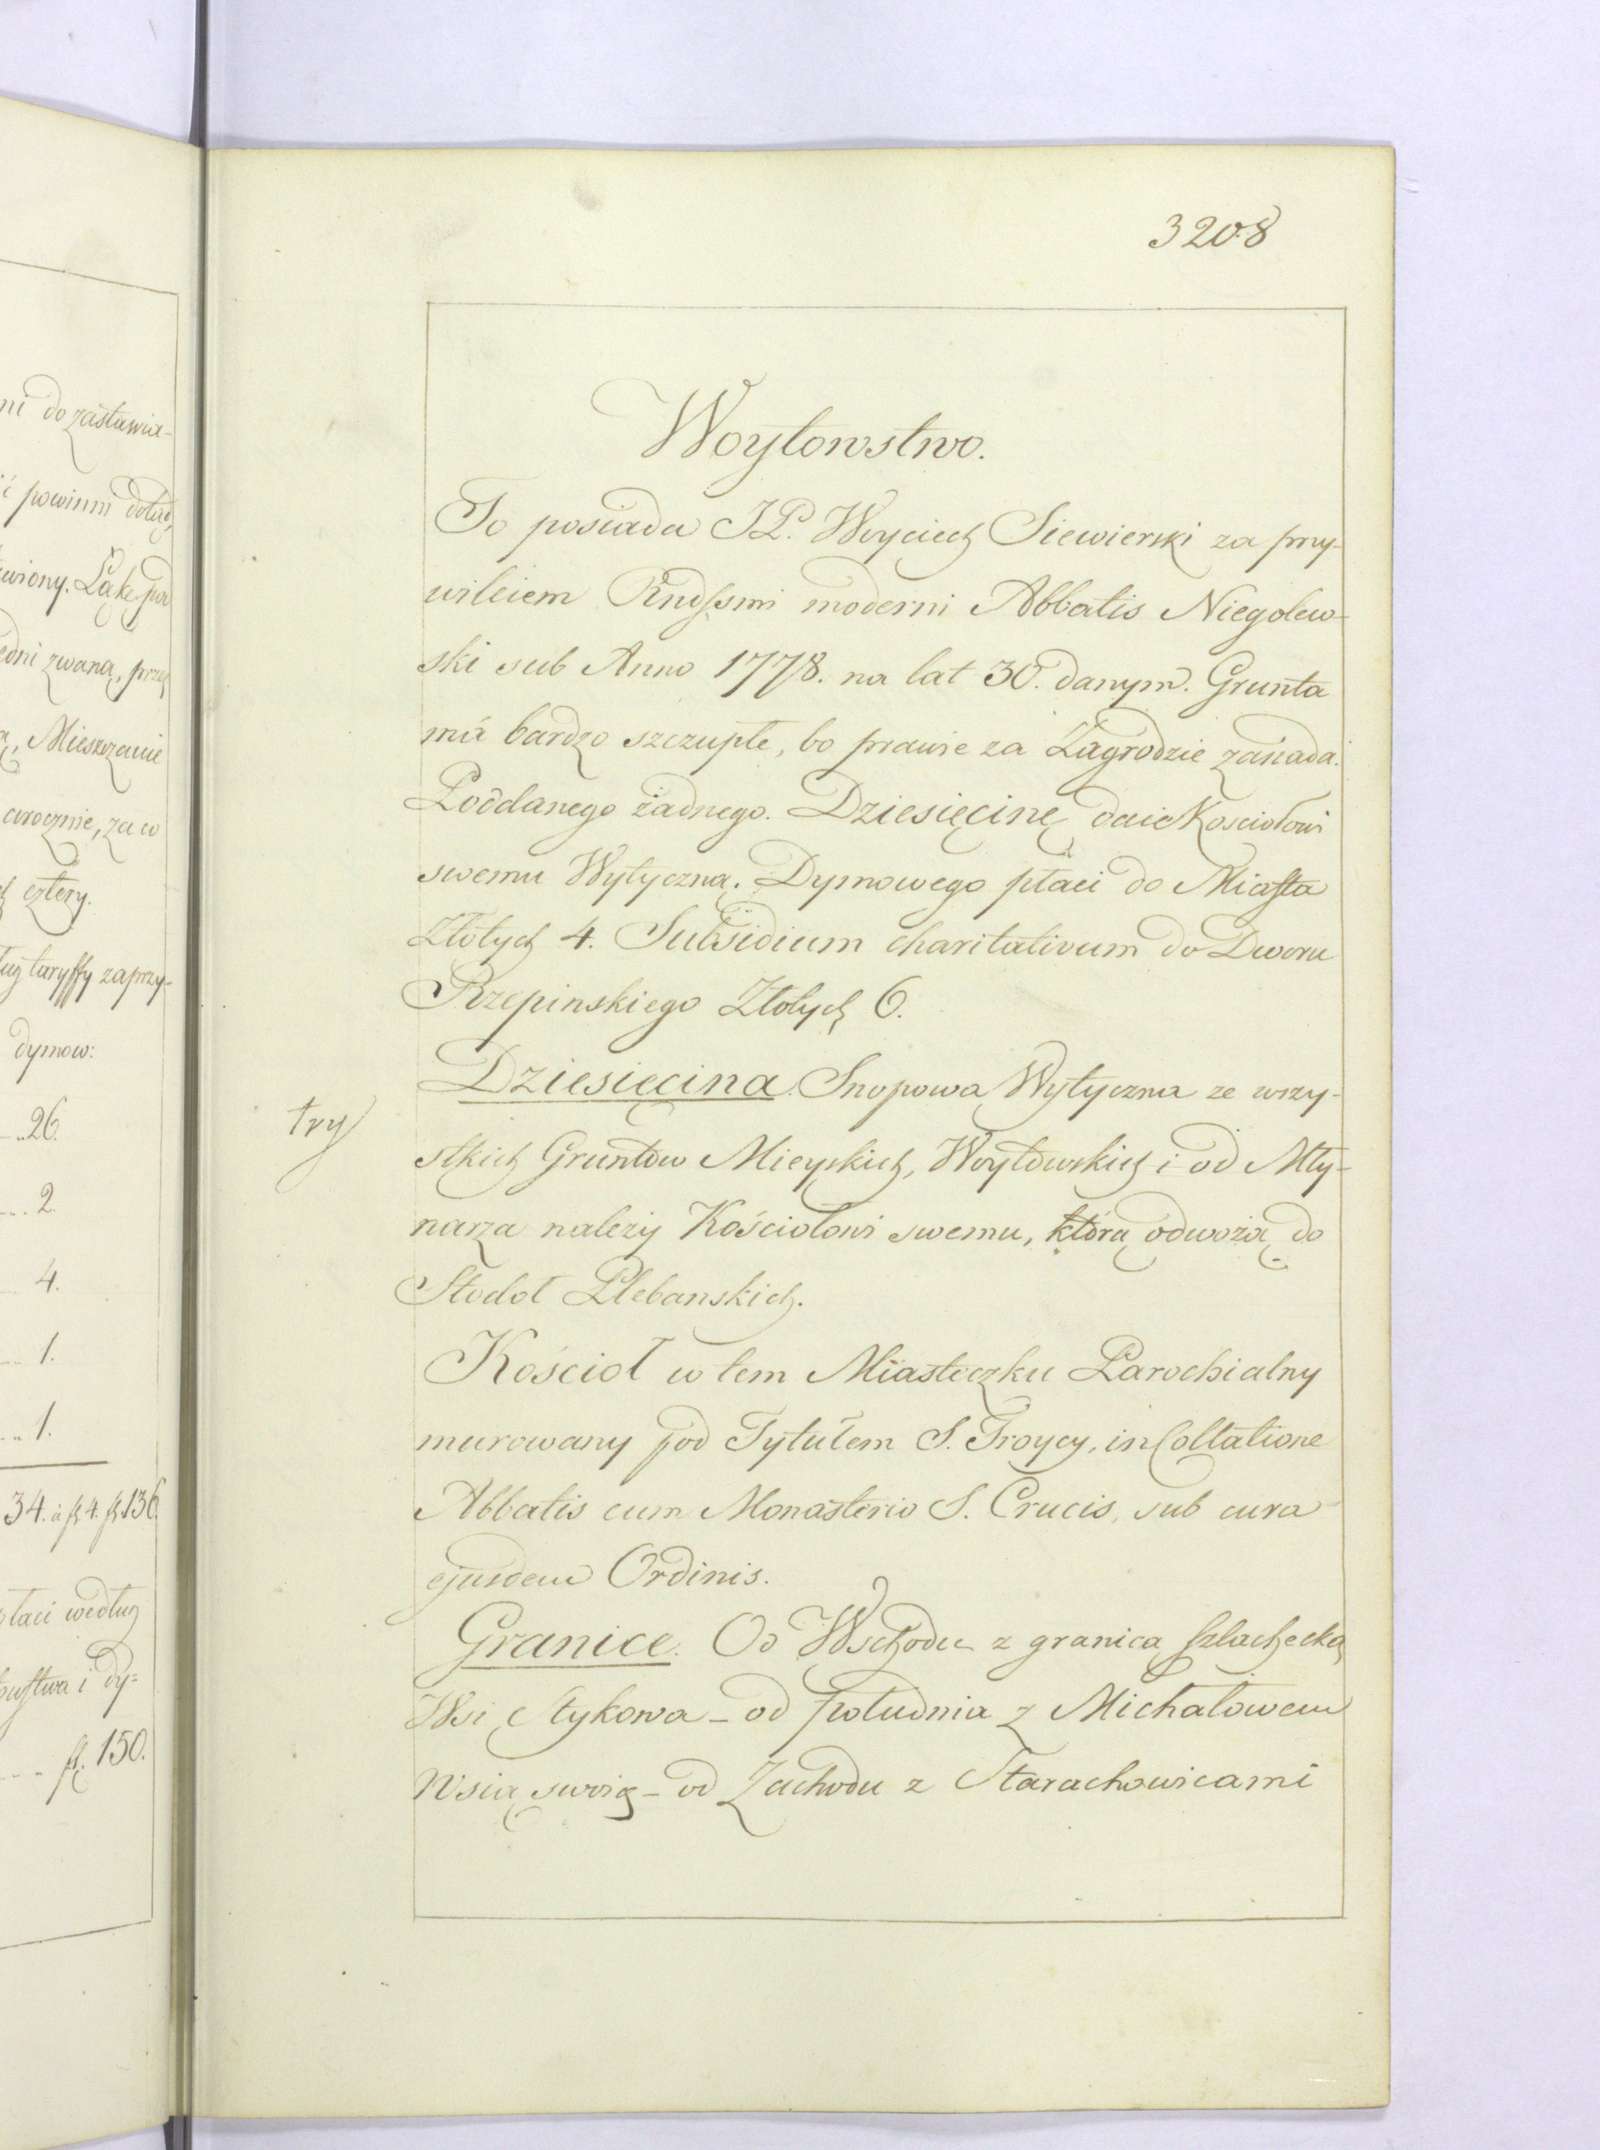 ni do zastawia-
ć powinni dotąd,
wiony. Łąkę pod
edni zwaną, przez
Mieszczanie
corocznie, za co
cztery.
ług taryffy zaprzy-
dymow:
26.
2.
4.
1.
1.
34. à fl 4. fl 136
płaci według
i dy=
fl. 150.
3208
Woytowstwo.
To posiada J.P. Woyciech Siewierski za przy-
wileiem Rndssmi moderni Abbatis Niegolew-
ski sub Anno 1778. na lat 30. danym. Grunta
má bardzo szczupłe, bo prawie za Zagrodzie zasiada.
Poddanego żadnego. Dziesięcinę daie Kosciołowi
swemu Wytyczną. Dymowego płaci do Miasta
Złotych 4. Subsidium charitativum do Dworu
Rzepinskiego Złotych 6.
Dziesięcina. Snopowa Wytyczna ze wszy-
try
stkich Gruntow Mieyskich, Woytowskich i od Mły-
narza należy Kościołowi swemu, którą odwożą do
Stodoł Plebanskich.
Kościoł w tem Miasteczku Parochialny
murowany pod Tytułem S. Troycy, in Collatione
Abbatis cum Monasterio S. Crucis, sub cura
ejusdem Ordinis.
Granice. Od Wschodu z granica szlachecką
Wsi Stykowa - od południa z Michałowem
Wsią swoią - od Zachodu z Starachowicami